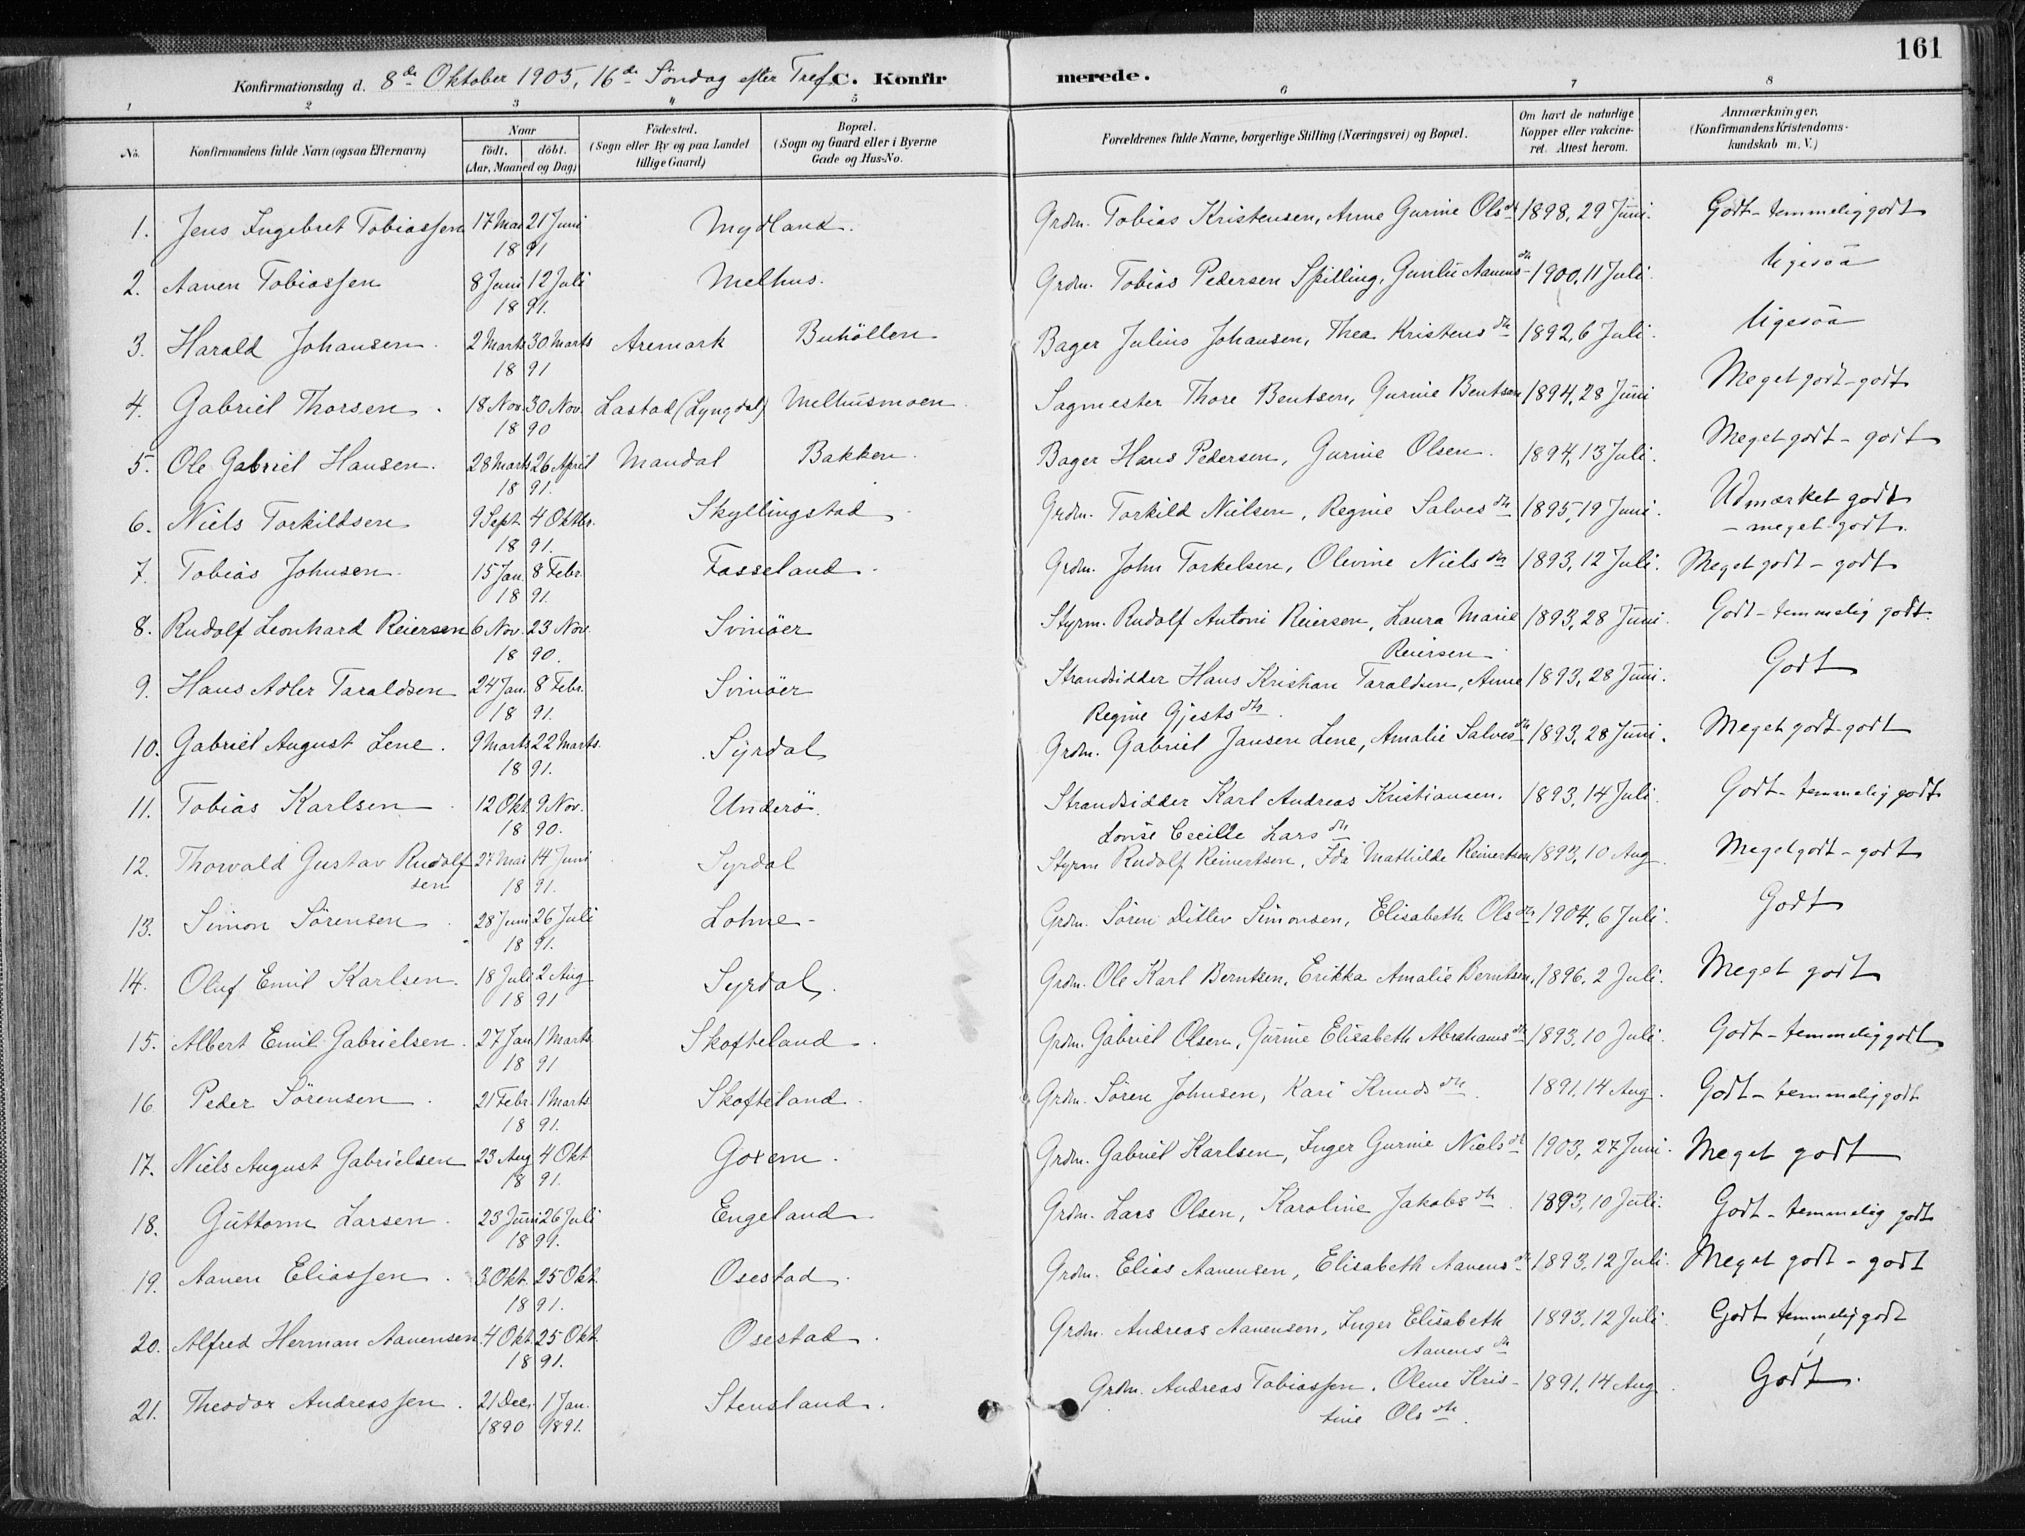 161
Konfirmationsdag d. 8de Oktober 1905, 16de Søndag efter Tref. C. Konfirmerede.
1 2 3 4 5 6 7 8
No. Konfirmandens fulde Navn (ogsaa Efternavn) Naar født. døbt. (Aar, Maaned og Dag) Födested. (Sogn eller By og paa Landet tillige Gaard) Bopæl. (Sogn og Gaard eller i Byerne Gade og Hus-No. Forældrenes fulde Navne, borgerlige Stilling (Næringsvei) og Bopæl. Om havt de naturlige Kopper eller vakcineret. Attest herom. Anmærkninger. (Konfirmandens Kristendomskundskab m. V.)
1. Jens Ingebret Tobiassen 17 Mai 21 Juni 1891 Mydland. Grdm. Tobias Kristensen, Anne Gurine Olsdtr 1898, 29 Juni. Godt - temmelig godt
2. Aanen Tobiassen 8 Juni 12 Juli 1891. Melhus. Grdm. Tobias Pedersen Spilling, Gunlu Aanensdtr 1900, 11 Juli. ligesaa
3. Harald Johansen. 2 Marts 30 Marts 1891 Aremark Buhöllen Bager Julius Johansen, Thea Kristensdtr 1892, 6 Juli. ligesaa
4. Gabriel Thorsen. 18 Nov. 30 Nov. 1890 Lastad (Lyngdal) Melhusmoen Sagmester Thore Bentsen, Gurine Bentsen 1894, 28 Juni Meget godt - godt
5. Ole Gabriel Hansen. 28 Marts 26 April 1891. Mandal Bakken. Bager Hans Pedersen, Gurine Olsen. 1894, 13 Juli. Meget godt - godt
6. Niels Torkildsen 9 Sept. 4 Oktbr. 1891. Skyllingstad Grdm. Torkild Nielsen, Regine Salvesdtr 1895, 19 Juni. Udmærket godt - meget godt.
7. Tobias Johnsen. 15 Jan. 8 Febr. 1891. Fasseland. Grdm. John Torkelsen, Olevine Nielsdtr 1893, 12 Juli. Meget godt - godt
8. Rudolf Leonhard Reiersen 6 Nov. 23 Nov. 1890. Svinöer Styrm. Rudolf Antoni Reiersen, Laura Marie Reiersen 1893, 28 Juni. Godt - temmelig godt.
9. Hans Adler Taraldsen 24 Jan. 8 Febr. 1891. Svinöer Strandsidder Hans Kristian Taraldsen, Anne Regine Gjestsdtr. 1893, 28 Juni. Godt
10. Gabriel August Lene. 9 Marts 22 Marts. 1891. Syrdal Grdm. Gabriel Jansen Lene, Amalie Salvesdtr 1893, 28 Juni. Meget godt - godt
11. Tobias Karlsen 12 Okt. 9 Nov. 1890. Underö. Strandsidder Karl Andreas Kristiansen. Lovise Cecille Larsdtr. 1893, 14 Juli. Godt - temmelig godt
12. Thorvald Gustav Rudolfsen 27 Mai 14 Juni 1891. Syrdal Styrm Rudolf Reinertsen, Ida Mathilde Reinertsen 1893, 10 Aug. Meget godt - godt
13. Simon Sörensen 28 Juni 26 Juli 1891. Lohne - Grdm. Sören Ditlev Simonsen, Elisabeth Olsdtr 1904, 6 Juli. Godt
14. Oluf Emil Karlsen. 18 Juli 2 Aug 1891 Syrdal. Grdm. Ole Karl Berntsen, Erikka Amalie Berntsen. 1896, 2 Juli. Meget godt
15. Albert Emil Gabrielsen. 27 Jan 1 Marts. 1891 Skofteland. Grdm. Gabriel Olsen, Gurine Elisabeth Abrahamsdtr 1893, 10 Juli. Godt - temmelig godt
16 Peder Sörensen. 21 Febr. 1 Marts. 1891. Skofteland. Grdm. Sören Johnsen, Kari Knudsdtr. 1891, 14 Aug. Godt - temmelig godt
17. Niels August Gabrielsen 23 Aug 4 Okt 1891. Goxem. Grdm. Gabriel Karlsen, Inger Gurine Nielsdtr 1903, 27 Juni. Meget godt
18. Guttorm Larsen. 23 Juni 26 Juli 1891. Engeland Grdm. Lars Olsen, Karoline Jakobsdtr 1893, 10 Juli. Godt - temmelig godt
19. Aanen Eliassen. 3 Okt. 25 Okt. 1891. Osestad. Grdm. Elias Aanensen, Elisabeth Aanensdtr 1893, 12 Juli. Meget godt - godt
20. Alfred Herman Aanensen 4 Okt. 25 Okt. 1891. Osestad. Grdm. Andreas Aanensen, Inger Elisabeth Aanensdtr 1893, 12 Juli. Godt temmelig godt
21. Theodor Andreassen. 21 Dec. 1890 1 Jan. 1891. Stensland. Grdm. Andreas Tobiassen, Olene Kristine Olsdtr. 1891, 14 Aug. Godt.